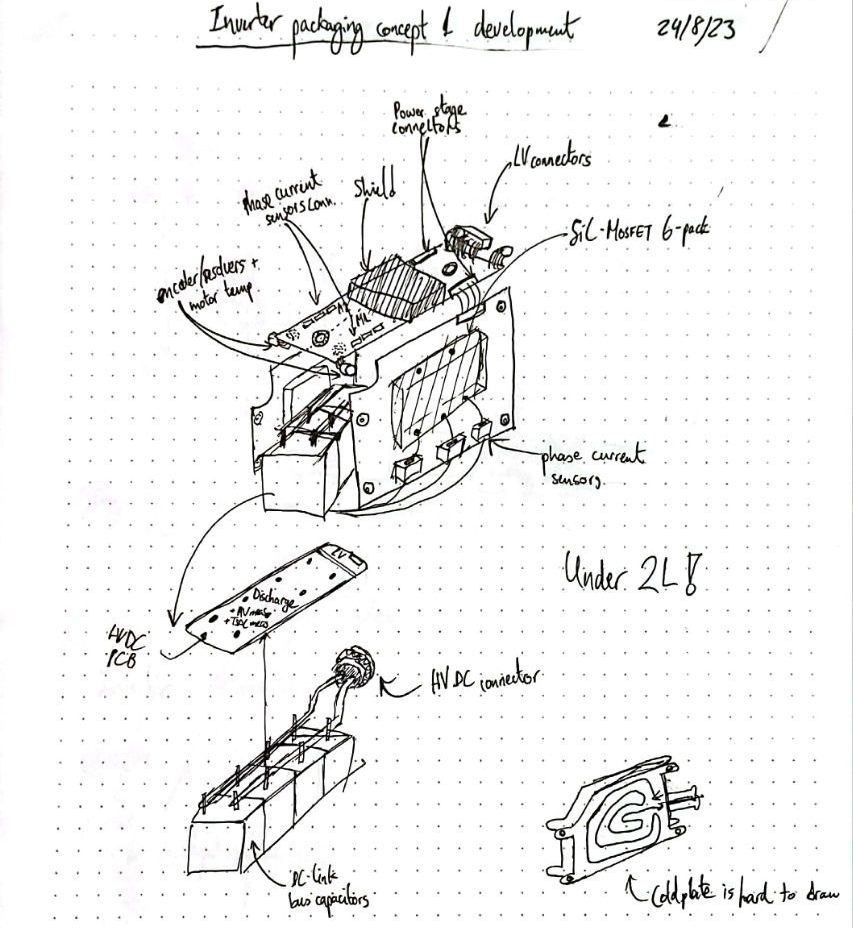 Inverter packaging concept 1 development
24/8/23
Power stage
connectors
LV connectors
phase current
sensors conn.
Shield
SiC-MOSFET 6-pack
encoder/resolvers +
motor temp
phase current
sensors
Under 2L!
LV
Discharge
HVDC
PCB
HVDC connector
DC-link
bus capacitors
Coldplate is hard to draw